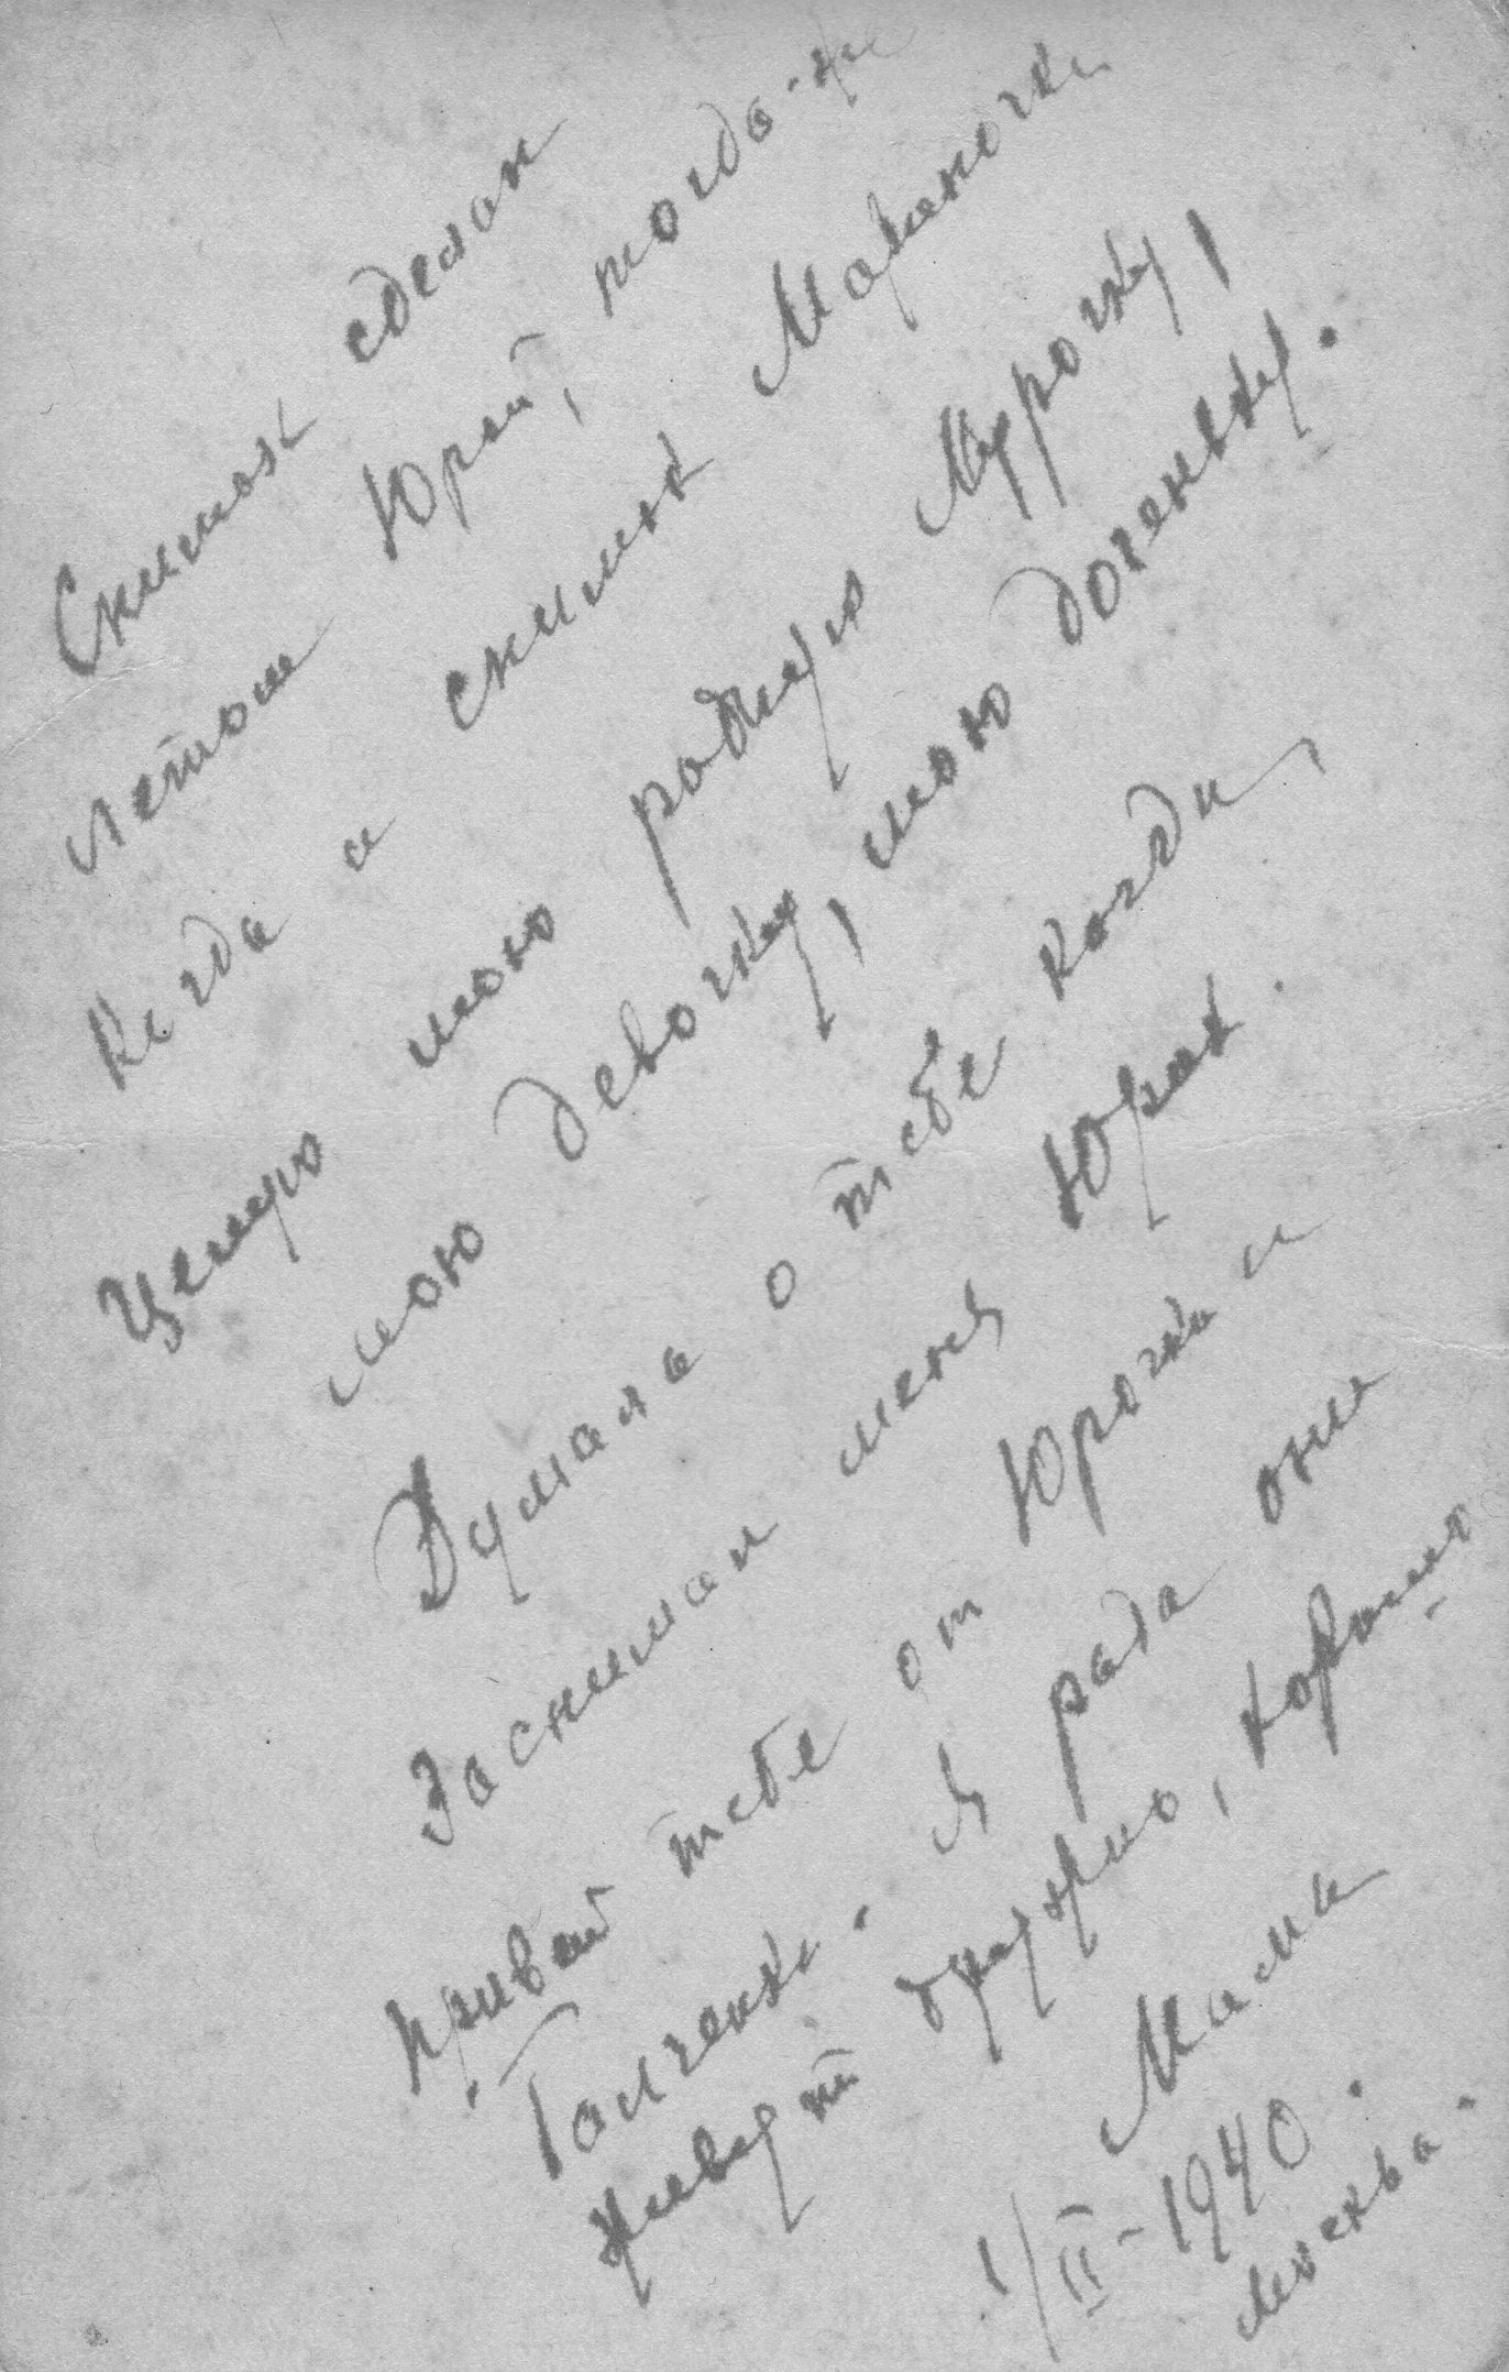 Снимок сделан
летом Юрой, тогда-же
Когда и снимок Мариночки
Целую мою родную Мурочку,
мою девочку, мою доченьку.
Думала о тебе когда,
Заснимал меня Юрик.
Привет тебе от Юрочки и
Галченка. Я рада они
живут дружно, хорошо
Мама
1/II-1940.
Москва.